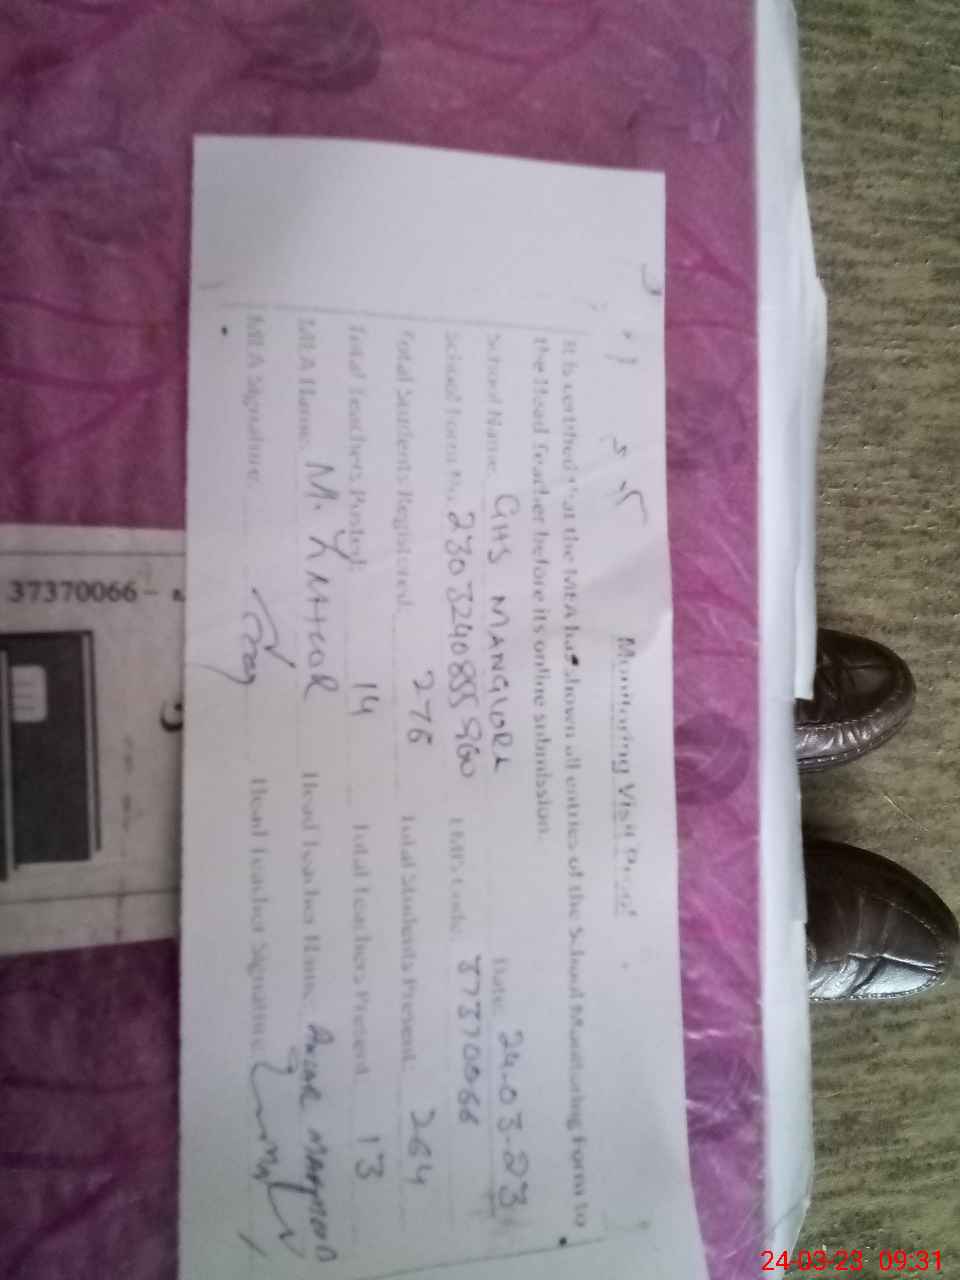 Monitoring Visit Proof
It is certified that the MEA has shown all entries of the School Monitoring Form to
the Head Teacher before its online submission.
School Name: GHS MANGLORE Date: 24-03-23
School Form No. 230324085 EMIS Code: 37370066
Total Students Registered: 276 Total Students Present: 264
Total Teachers Posted: 14 Total Teachers Present: 13
MEA Name: M. Head Teacher Name: MAHMOOD
MEA Signature: Head Teacher Signature:
37370066 -
24-03-23 09:31